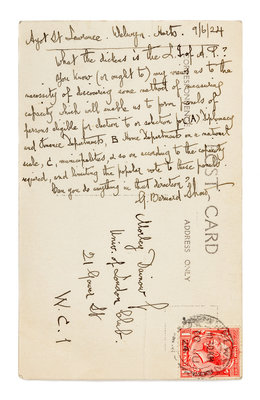 Ayot St Lawrence. Welwyn. Herts. 9/6/24
What the dickens is the L.I. of A.P.?
You know (or ought to) my views as to the
necessity of discovering some method of measuring
capacity which will enable us to form panels of
persons eligible for election to or selection for (A) Diplomacy
and Finance Departments, B Home Departments on a national
scale, C, municipalities, & so on according to the capacity
required, and limiting the popular vote to these panels.
Can you do anything in that direction?
G. Bernard Shaw
POST CARD
CORRESPONDENCE
ADDRESS ONLY
Univ. of London Club.
21 Gower St
W.C.1